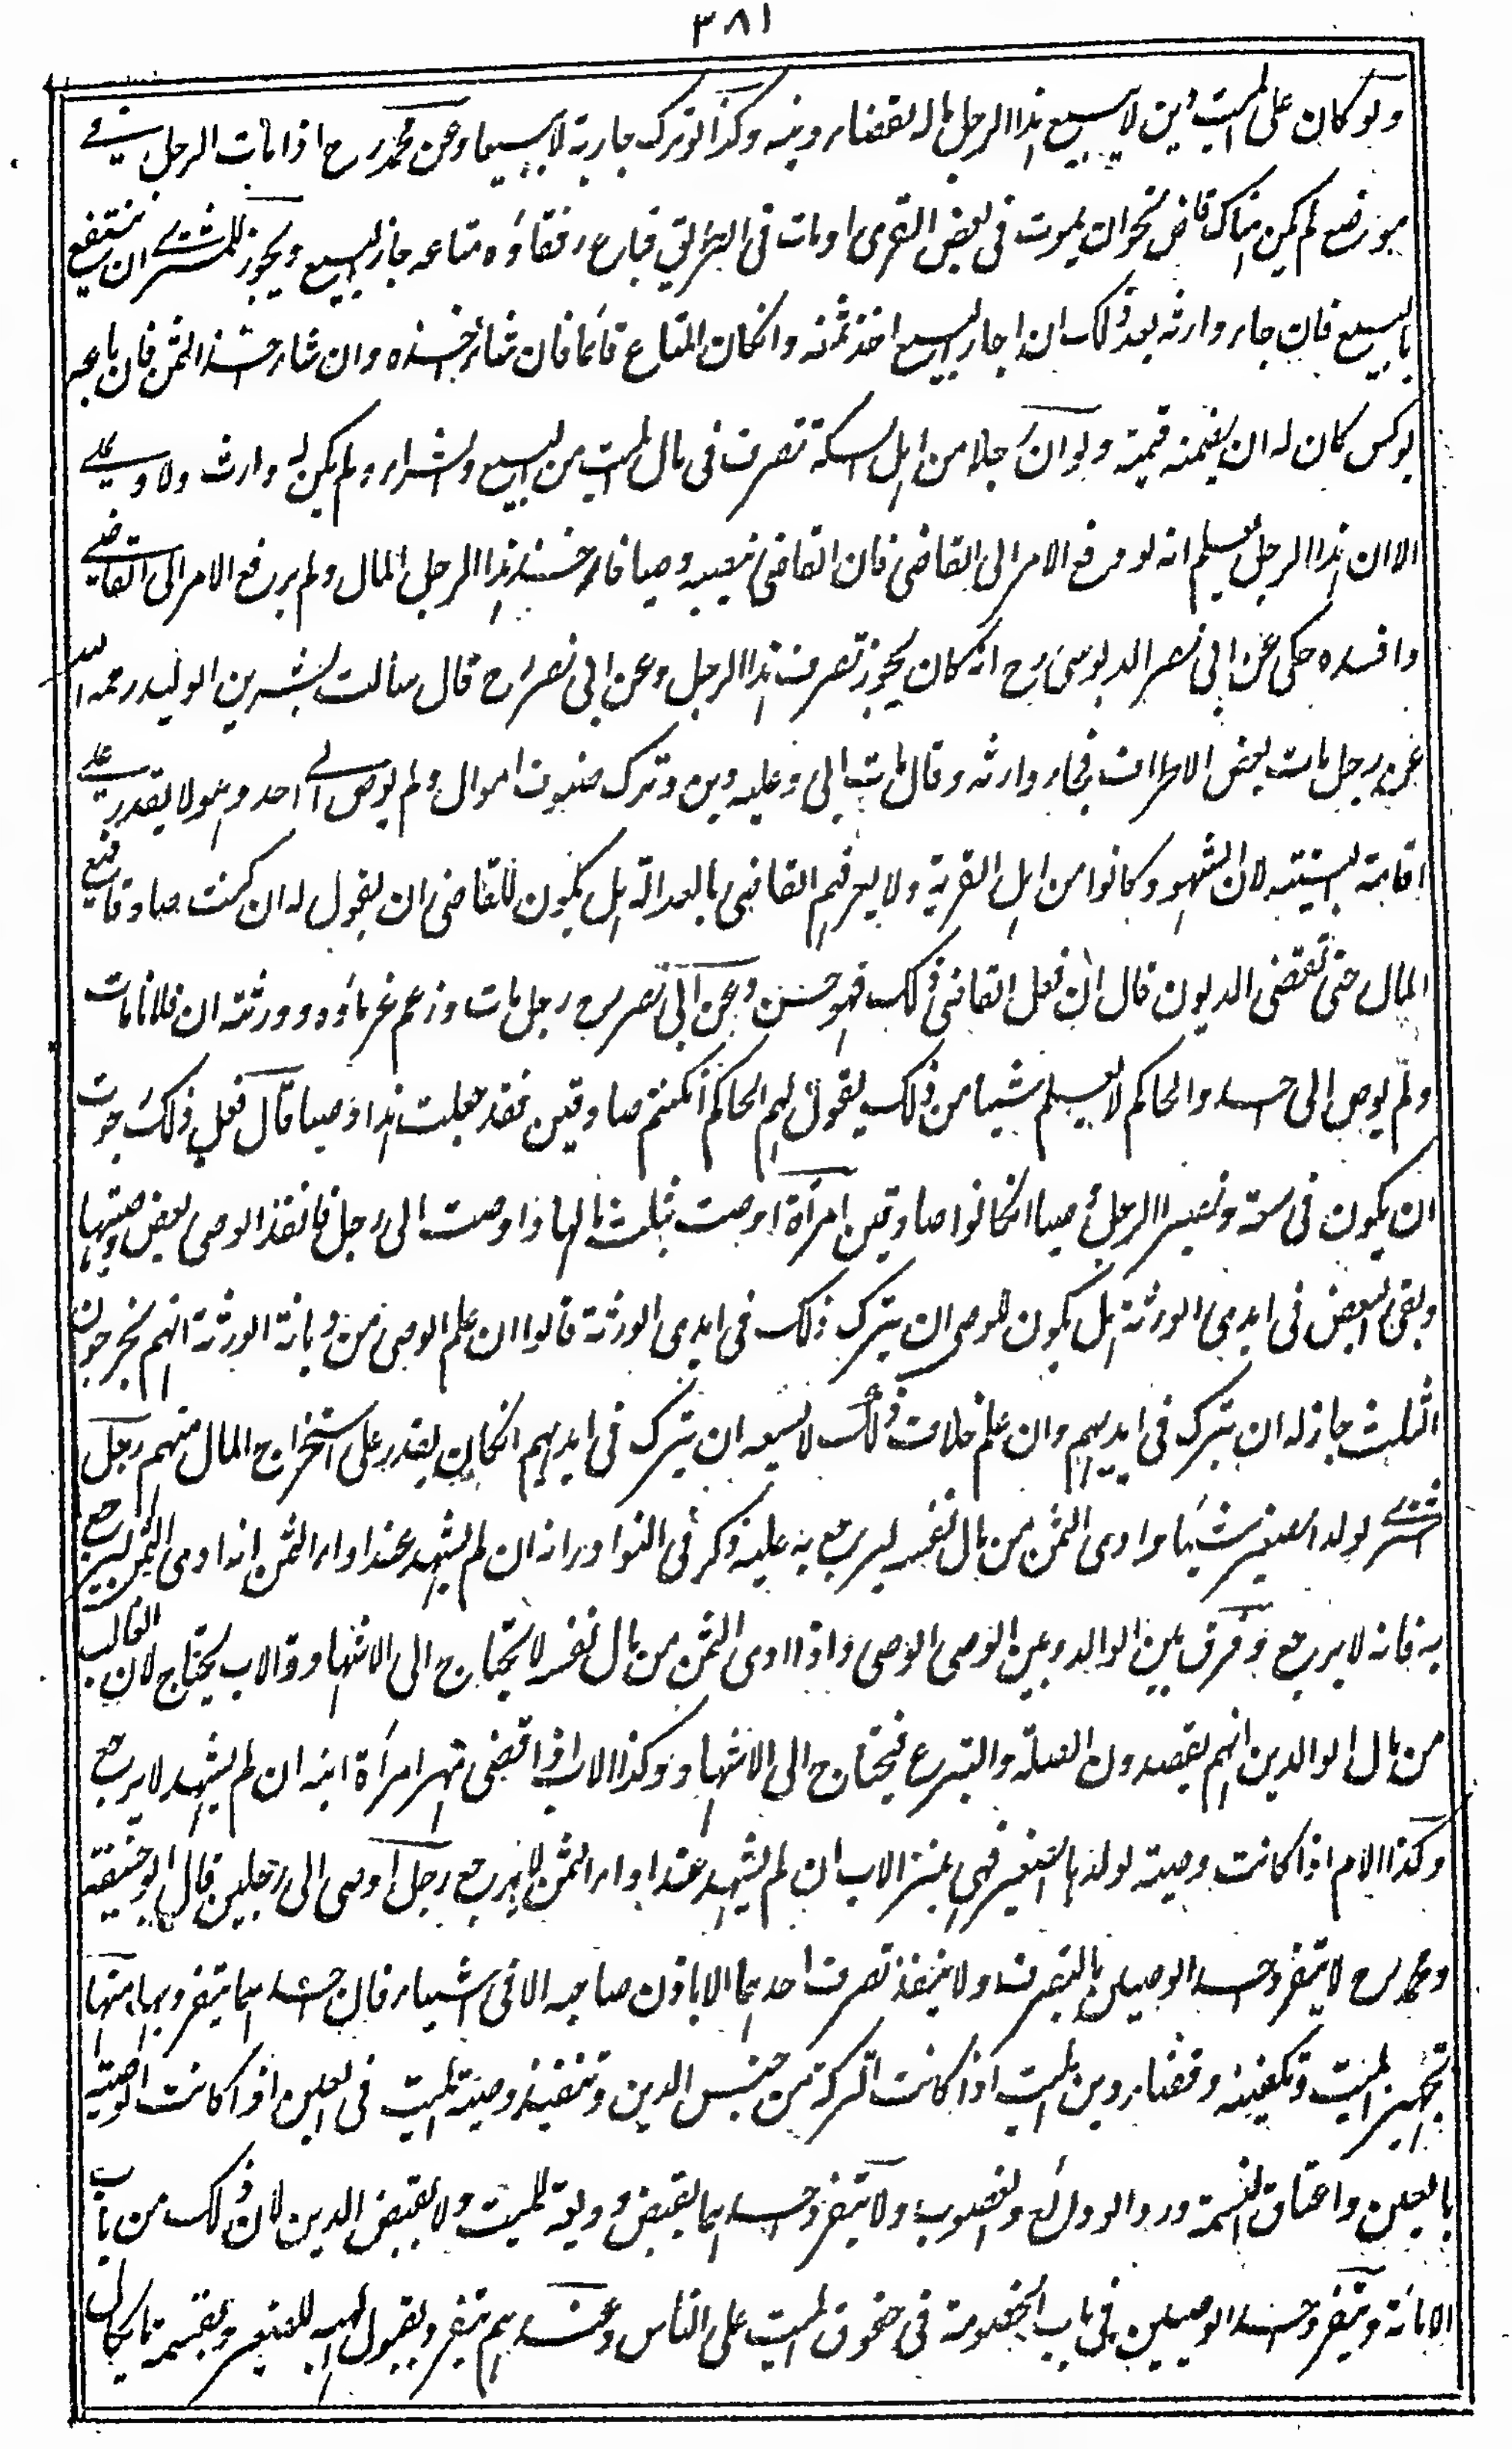 ٣٨١
ولو كان على الميت دين لا يبيع هذا الرجل ماله لقضاء دينه وكذا لو ترك جارية لا يبيعها وعن محمد رح اذا مات الرجل في
موضع لم يكن هناك قاض نحو ان يموت في بعض القرى او مات في الطريق فباع رفقاؤه متاعه جاز البيع ويجوز للمشتري ان ينتفع
بالمبيع فان جاء وارثه بعد ذلك ان اجاز البيع اخذ ثمنه وان كان المتاع قائما فان شاء اخذه وان شاء اخذ الثمن فان باعه
بوكس كان له ان يضمنه قيمته ولو ان رجلا من اهل السكة تصرف في مال الميت من البيع والشراء ولم يكن له وارث ولا وصي
الا ان هذا الرجل يعلم انه لو رفع الامر الى القاضي فان القاضي ينصبه وصيا فاخذ هذا الرجل المال ولم يرفع الامر الى القاضي
وافسده حكي عن ابي نصر الدبوسي رح انه كان يجوز تصرف هذا الرجل وعن ابي نصر رح قال سألت بشر بن الوليد رحمه الله
عن رجل مات ببعض الاطراف فجاء وارثه وقال مات ابي وعليه دين وترك صنوف اموال ولم يوص الى احد وهو لا يقدر على
اقامة البينة لان الشهود كانوا من اهل القرية ولا يعرفهم القاضي بالعدالة هل يكون للقاضي ان يقول له ان كنت صادقا فبع
المال حتى تقضي الديون قال ان فعل القاضي ذلك فهو حسن وعن ابي نصر رح رجل مات وزعم غرماؤه وورثته ان فلانا مات
ولم يوص الى احد والحاكم لا يعلم شيئا من ذلك يقول لهم الحاكم ان كنتم صادقين فقد جعلت هذا وصيا قال فعل ذلك رجوت
ان يكون في سعة ويصير الرجل وصيا ان كانوا صادقين امرأة اوصت بثلث مالها واوصت الى رجل فانفذ الوصي بعض وصيتها
وبقي البعض في ايدي الورثة هل يكون للوصي ان يترك ذلك في ايدي الورثة قالوا ان علم الوصي من ديانة الورثة انهم يخرجون
الثلث جاز له ان يترك في ايديهم وان علم خلاف ذلك لا يسعه ان يترك في ايديهم ان كان يقدر على استخراج المال منهم رجل
اشترى لولده الصغير شيئا وادى الثمن من مال نفسه ليرجع به عليه ذكر في النوادر انه ان لم يشهد عند اداء الثمن انه ادى الثمن ليرجع
به فانه لا يرجع وفرق بين الوالد وبين الوصي الوصي واذا ادى الثمن من مال نفسه لا يحتاج الى الاشهاد والاب يحتاج لان الغالب
من مال الوالدين انهم يقصدون الصلة والتبرع فيحتاج الى الاشهاد وكذا الاب اذا قضى مهر امرأة ابنه ان لم يشهد لا يرجع
وكذا الام اذا كانت وصية لولدها الصغير فهي بمنزلة الاب ان لم يشهد عند اداء الثمن لا يرجع رجل اوصى الى رجلين قال ابو حنيفة
ومحمد رح لا ينفرد احد الوصيين بالتصرف ولا ينفذ تصرف احدهما الا باذن صاحبه الا في اشياء فان احدهما يتفرد بها منها
تجهيز الميت وتكفينه وقضاء دين الميت اذا كانت التركة من جنس الدين وتنفيذ وصية الميت في العين اذا كانت الوصية
بالعين واعتاق النسمة ورد الودائع والغصوب ولا يتفرد احدهما بقبض وديعة الميت ولا بقبض الدين لان ذلك من باب
الامانة ويتفرد احد الوصيين في باب الخصومة في حقوق الميت على الناس وعندهم يتفرد بقبول الهبة للصغير وبقسمة ما يكال